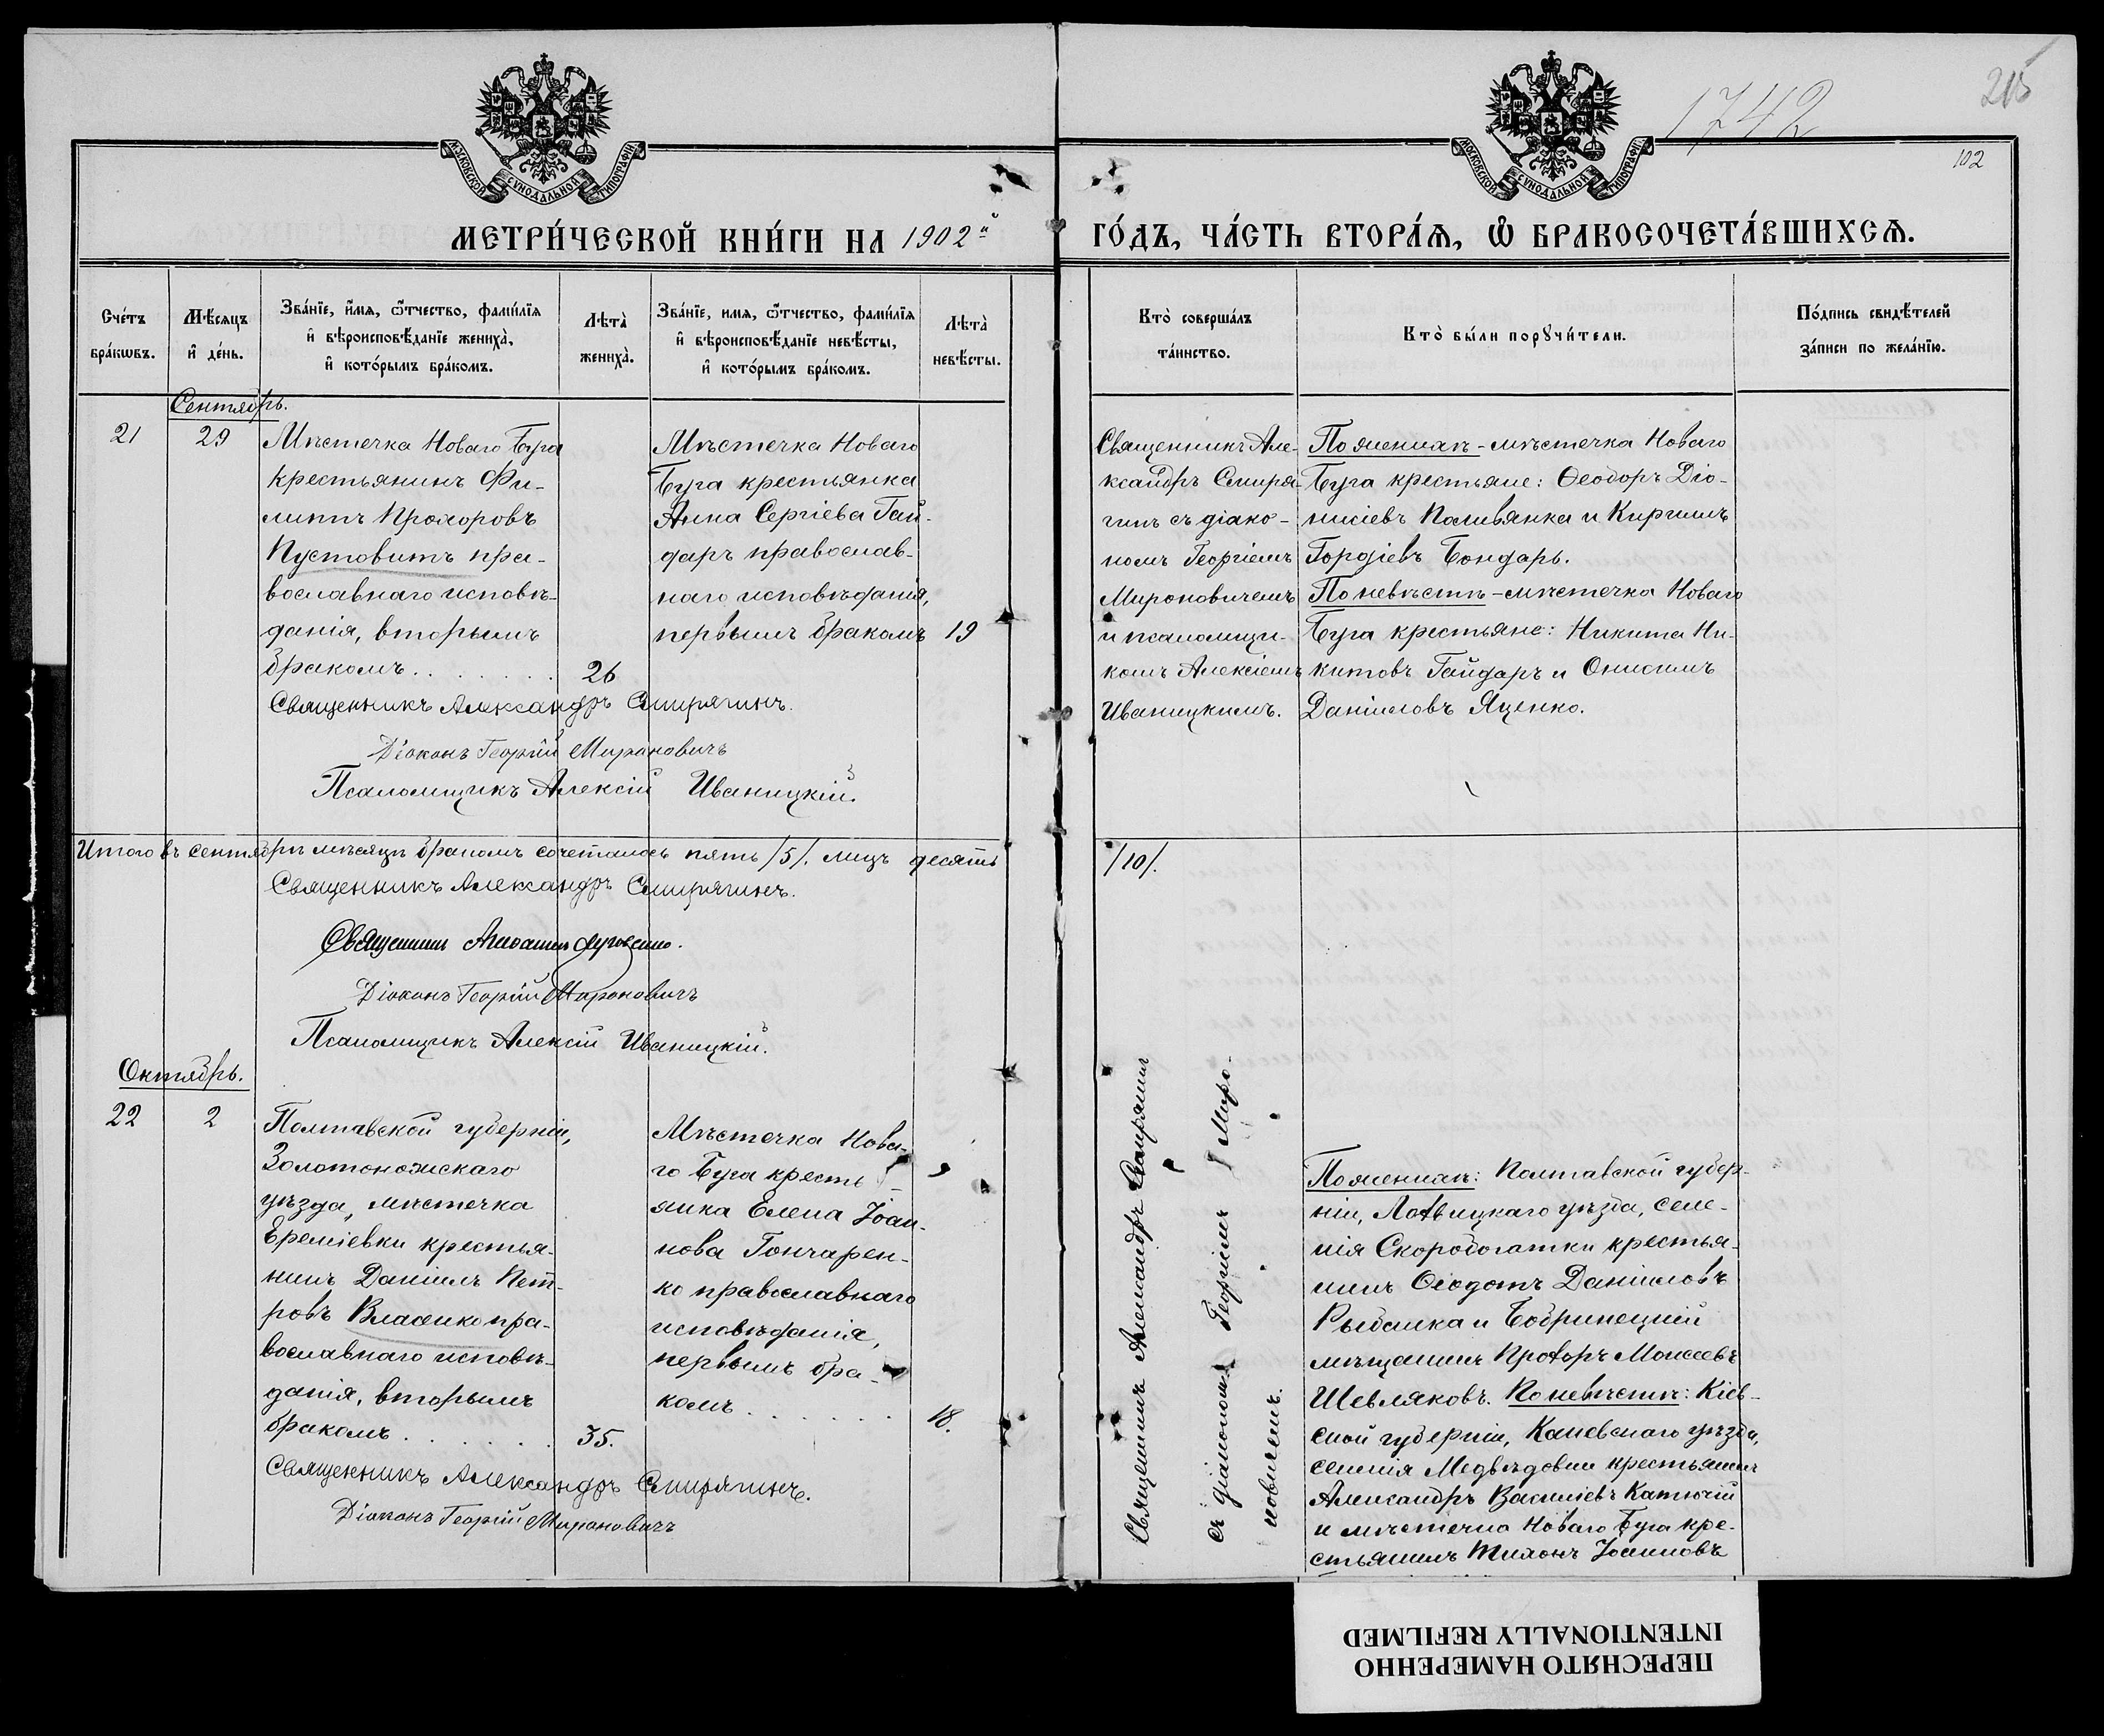 1742
215
102
МОСКОВСКОЙ СУНОДАЛЬНОЙ ТИПОГРАФІИ
МОСКОВСКОЙ СУНОДАЛЬНОЙ ТИПОГРАФІИ
МЕТРИ́ЧЕСКОЙ КНИ́ГИ НА 1902й
ГО́ДЪ, ЧА́СТЬ ВТОРА́Ѧ, Ѡ҆ БРАКОСОЧЕТА́ВШИХСѦ.
Сче́тъ бра́кѡвъ.
Мѣ́сяцъ и҆ де́нь.
Зва́нїе, и҆́мя, ѻ҆́тчество, фами́лїя
и҆ вѣроисповѣ́данїе жениха̀,
и҆ кото́рымъ бра́комъ.
Лѣта̀ жениха̀.
Зва́нїе, имя, ѻ҆́тчество, фами́лїя
и҆ вѣроисповѣ́данїе невѣ́сты,
и҆ кото́рымъ бра́комъ.
Лѣта̀ невѣ́сты.
Кто̀ соверша́лъ
та́инство.
Кто̀ бы́ли порꙋчи́тели.
По́дпись свидѣ́телей
за́писи по жела́нїю.
Сентябрь.
21
29
Мѣстечка Новаго Буга
крестьянинъ Фи-
липпъ Прохоровъ
Пустовитъ пра-
вославнаго исповѣ-
данія, вторымъ
бракомъ . . . . . . .
26
Мѣстечка Новаго
Буга крестьянка
Анна Сергіева Гай-
даръ православ-
наго исповѣданія,
первымъ бракомъ
19
Священникъ Александръ Смирягинъ.
Діаконъ Георгій Мироновичъ
Псаломщикъ Алексій Иваницкій.
Священникъ Але-
ксандръ Смиря-
гинъ съ діако-
номъ Георгіемъ
Мироновичемъ
и псаломщи-
комъ Алексіемъ
Иваницкимъ.
По женихѣ - мѣстечка Новаго
Буга крестьяне: Ѳеодоръ Діо-
нисіевъ Поливянка и Кириллъ
Гордіевъ Бондарь.
По невѣстѣ - мѣстечка Новаго
Буга крестьяне: Никита Ни-
китовъ Гайдаръ и Онисимъ
Даніиловъ Яценко.
Итого въ сентябрѣ мѣсяцѣ бракомъ сочеталось пять /5/. лицъ десять
/10/.
Священникъ Александръ Смирягинъ.
Священникъ
Діаконъ Георгій Мироновичъ
Псаломщикъ Алексій Иваницкій.
Октябрь.
22
2
Полтавской губерніи,
Золотоножскаго
уѣзда, мѣстечка
Ереміевки крестья-
нинъ Даніилъ Пет-
ровъ Власенко пра-
вославнаго исповѣ-
данія, вторымъ
бракомъ . . . . . . .
35.
Мѣстечка Нова-
го Буга кресть-
янка Елена Іоан-
нова Гончарен-
ко православнаго
исповѣданія,
первымъ бра-
комъ . . . . . . .
18.
Священникъ Александръ Смирягинъ.
Діаконъ Георгій Мироновичъ
Священникъ Александръ Смирягинъ
съ діакономъ Георгіемъ Миро-
новичемъ.
По женихѣ: Полтавской губер-
ніи, Лохвицкаго уѣзда, селе-
нія Скоробогатки крестья-
нинъ Ѳеодотъ Даніиловъ
Рыбалка и Бобринецкій
мѣщанинъ Прохоръ Моисеевъ
Шевляковъ. По невѣстѣ: Кіев-
ской губерніи, Каневскаго уѣзда,
селенія Медвѣдовки крестьянинъ
Александръ Василіевъ Катючій
и мѣстечка Новаго Буга кре-
стьянинъ Тихонъ Іоанновъ
ПЕРЕСНЯТО НАМЕРЕННО
INTENTIONALLY REFILMED